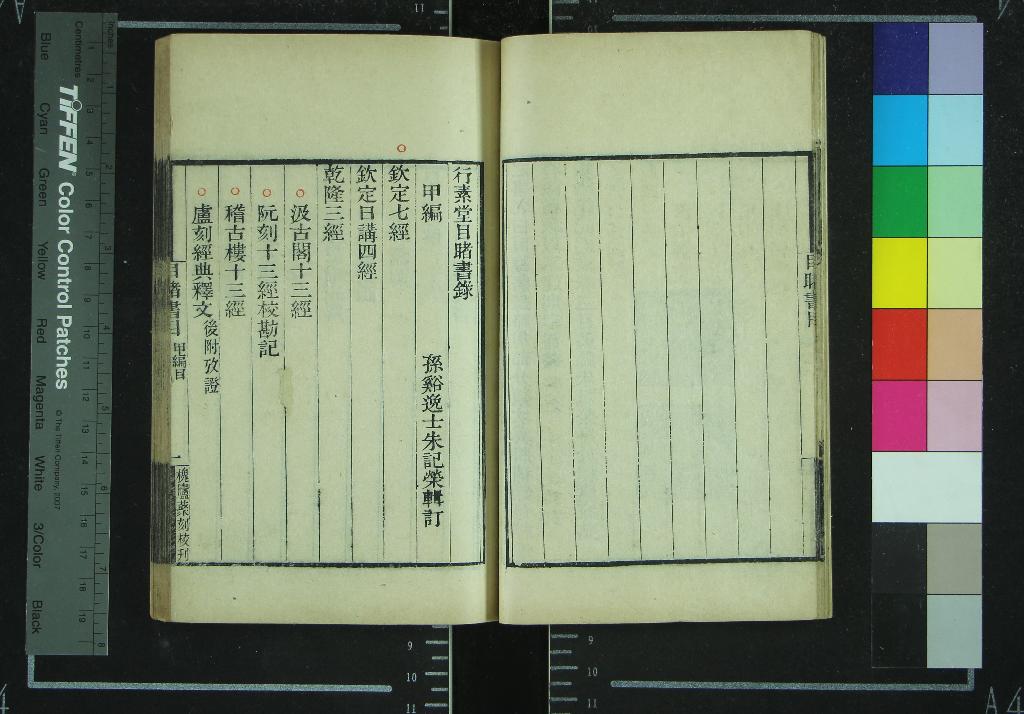 行素堂目睹書錄
甲編
孫谿逸士朱記榮輯訂
欽定七經
欽定日講四經
乾隆三經
汲古閣十三經
阮刻十三經校勘記
稽古樓十三經
盧刻經典釋文後附攷證
目睹書目
甲編目
一
槐廬叢刻校刊
TIFFEN Color Control Patches
© The Tiffen Company, 2007
Inches
Centimetres
Blue
Cyan
Green
Yellow
Red
Magenta
White
3/Color
Black